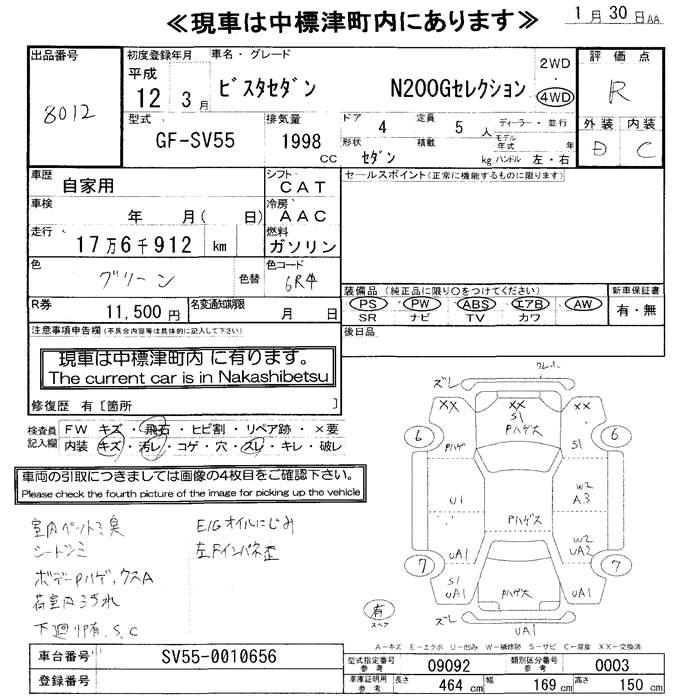 ≪現車は中標津町内にあります≫
1月30日AA
出品番号
8012
初度登録年月
平成
12 3月
車名・グレード
ビスタセダン N200Gセレクション
2WD
・
4WD
評価点
R
外装 内装
D C
型式
GF-SV55
排気量
1998
CC
ドア
4
定員
5人
ディーラー・並行
モデル年式 年
形状
セダン
積載
kg
ハンドル 左・右
車歴
自家用
シフト
CAT
セールスポイント(正常に機能するものに限ります)
車検
年 月( 日)
冷房
AAC
走行
17万6千912 km
燃料
ガソリン
色
グリーン
色替
色コード
6R4
装備品(純正品に限り○をつけてください)
PS PW ABS エアB AW
SR ナビ TV カワ
新車保証書
有・無
R券
11,500円
名変通知期限
月 日
後日品
注意事項申告欄(不具合内容等は具体的に記入して下さい)
現車は中標津町内に有ります。
The current car is in Nakashibetsu
修復歴 有[箇所 ]
検査員記入欄
FW キズ・飛石・ヒビ割・リペア跡・×要
内装 キズ・汚レ・コゲ・穴・スレ・キレ・破レ
車両の引取につきましては画像の4枚目をご確認下さい。
Please check the fourth picture of the image for picking up the vehicle
室内ペットミ臭
シートシミ
ボデーPハゲ,クスA
荷室内ヨゴれ
下廻りP有、S、C
E/Gオイルにじみ
左Fインパネ歪
クレーバー
ズレ
XX XX XX
S1
Pハゲ大
6 6
Pハゲ
S1
U1
W2
A3
Pハゲス
UA1
W2
UA2
7 7
S1
UA1
Pハゲ大
UA1
ズレ
UA1
有
スペア
A-キズ E-エクボ U-凹み W-補修跡 S-サビ C-腐食 XX-交換済
車台番号
SV55-0010656
登録番号
型式指定番号
参考
09092
類別区分番号
参考
0003
車庫証明用
参考
長さ
464 cm
幅
169 cm
高さ
150 cm